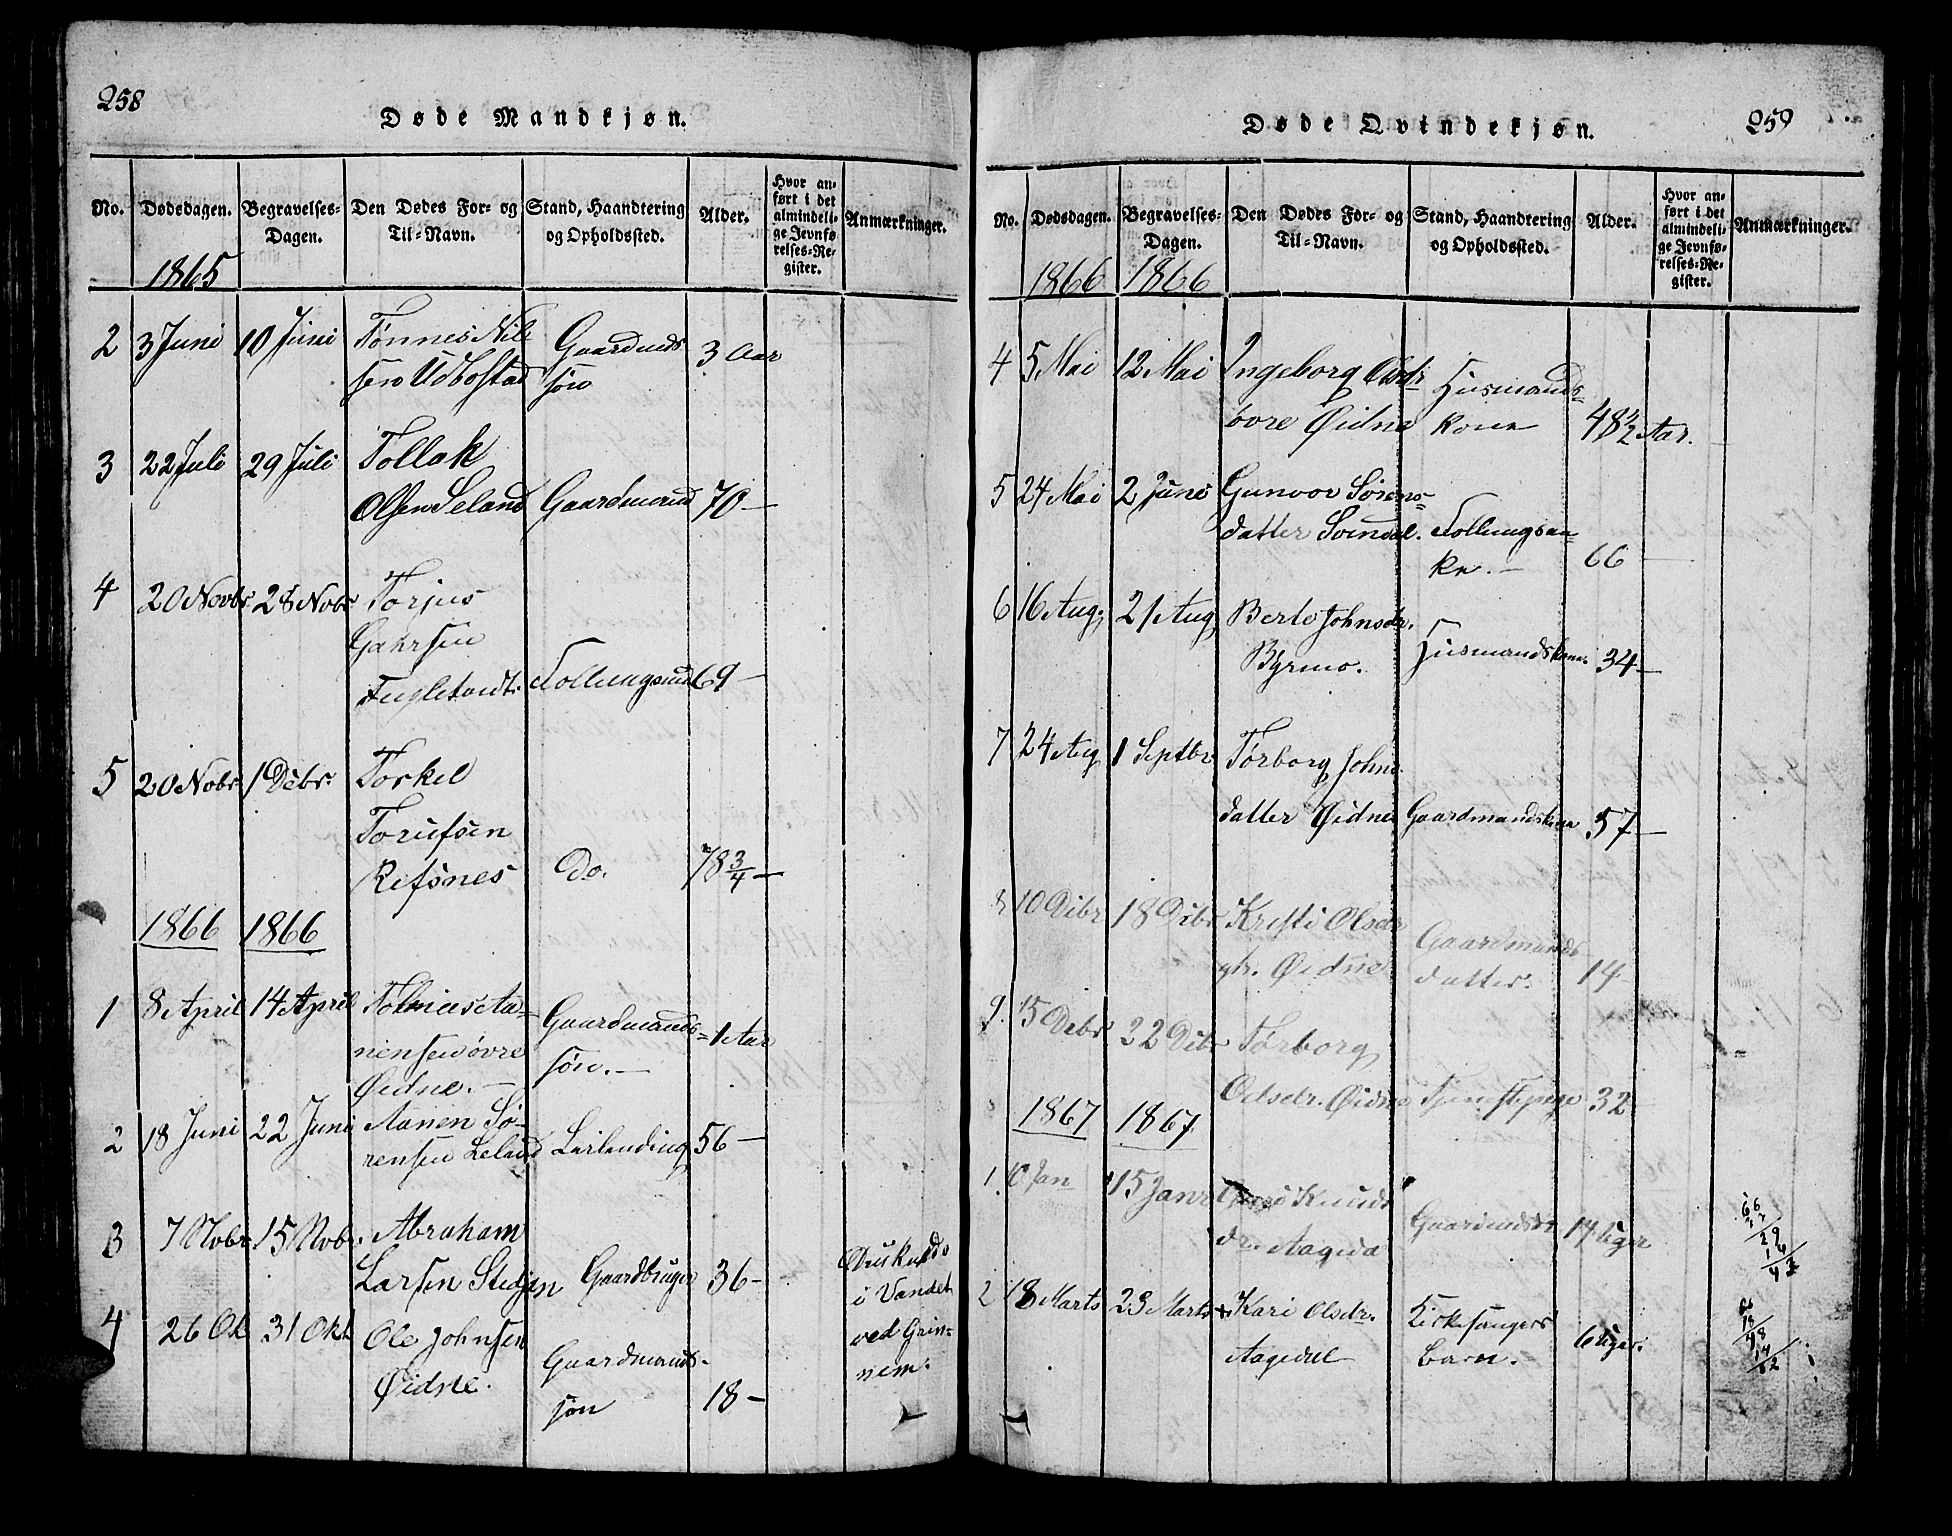 258
Døde Mandkjøn.
No. Dødsdagen. Begravelses-Dagen. Den Dødes For- og Til-Navn. Stand, Haandtering og Opholdssted. Alder. Hvor anført i det almindelige Jevnførelses-Register. Anmærkninger.
1865
2 3 Juni 10 Juni Tønnes Nil-
sen Udbostad Gaardmds søn 3 Aar
3 22 Juli 29 Juli Tollak
Olsen Seland Gaardmand 70 —
4 20 Novbr 28 Nobr Torjus
Gahrsen
69 —
5 20 Nobr 1 Debr. Torkel
Torufsen
Refsnes Do. 78 3/4 —
1866 1866
1 8 April 14 April Tobias Aa-
nensen øvre Gaardmands- 1 Aar
Øidne. — søn. —
2 18 Juni 22 Juni Aanen Sø-
rensen Leland 56 —
3 7 Nobr 15 Nobr. Abraham
Larsen Gaardbruger 36 — Druknede
i Vandet
ved Grin-
nem.
4 26 Ok 31 Okt Ole Johnsen
Øidne. Gaardmands-
søn 18 —
259
Døde Qvindekjøn.
No. Dødsdagen. Begravelses-Dagen. Den Dødes For- og Til-Navn. Stand, Haandtering og Opholdssted. Alder. Hvor anført i det almindelige Jevnførelses-Register. Anmærkninger.
1866 1866
4 5 Mai 12 Mai Ingeborg Olsdr
øvre Øidne Husmands-
kone 48 1/2 Aar.
5 24 Mai 2 Juni Gunvor Sørens-
datter Svindal. 66 —
6 16 Aug. 21 Aug Berte Johnsdr.
Byrmo. Husmandskone. 34 —
7 24 Aug 1 Septbr Tørborg Johns
datter Øidne Gaardmandskone 57 —
8 10 Debr 18 Debr Kristi Olsdr
Øidne Gaardmands
datter. 14
9. 15 Debr 22 Debr Tørborg
Odsdr. Øidne Tjenestepige 32
1867 1867
1. Jan 15 Janr Knuds
dr. Aagedal 14 Uger
2 18 Marts 23 Marts Kari Olsdr.
Aagedal Kirkesangers
Barn. 6 Uger.